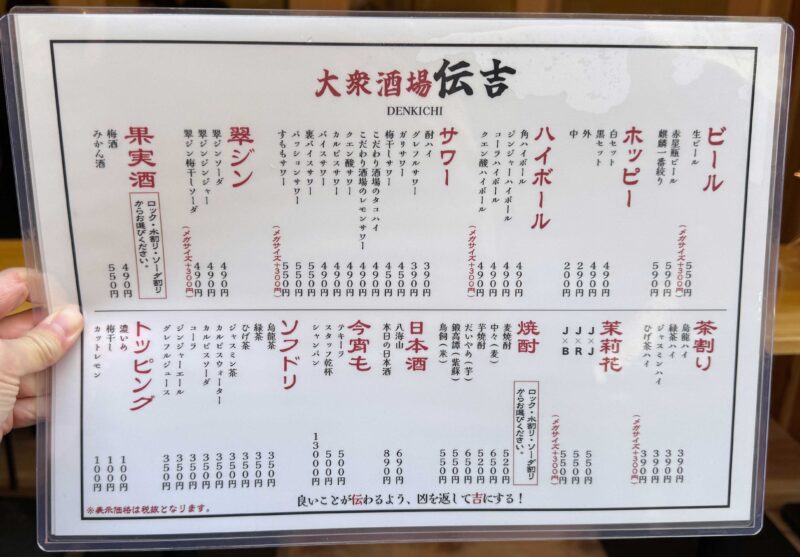 大衆酒場 伝吉
DENKICHI
ビール
生ビール 550円
(メガサイズ+300円)
赤星瓶ビール 590円
麒麟一番搾り 590円
ホッピー
白セット 490円
黒セット 490円
外 290円
中 200円
ハイボール
角ハイボール 490円
ジンジャーハイボール 490円
コーラハイボール 490円
クエン酸ハイボール 490円
(メガサイズ+300円)
サワー
酎ハイ 390円
グレフルサワー 390円
ガリサワー 450円
梅干しサワー 450円
こだわり酒場のタコハイ 450円
こだわり酒場のレモンサワー 490円
クエン酸サワー 490円
カルピスサワー 490円
バイスサワー 490円
裏バイスサワー 550円
パッションサワー 550円
すももサワー 550円
(メガサイズ+300円)
翠ジン
翠ジンソーダ 490円
翠ジンジンジャー 490円
翠ジン梅干しソーダ 490円
(メガサイズ+300円)
果実酒
ロック・水割り・ソーダ割り
からお選びください。
梅酒 490円
みかん酒 550円
茶割り
烏龍ハイ 390円
緑茶ハイ 390円
ジャスミンハイ 390円
ひげ茶ハイ 390円
(メガサイズ+300円)
茉莉花
J×J 550円
J×R 550円
J×B 550円
(メガサイズ+300円)
焼酎
ロック・水割り・ソーダ割り
からお選びください。
麦焼酎 520円
中々(麦) 650円
芋焼酎 520円
だいやめ(芋) 650円
鍛高譚(紫蘇) 550円
鳥飼(米) 550円
日本酒
八海山 690円
本日の日本酒 890円
今宵も
テキーラ 500円
スタッフ乾杯 500円
シャンパン 13000円
ソフドリ
烏龍茶 350円
緑茶 350円
ひげ茶 350円
ジャスミン茶 350円
カルピスウォーター 350円
カルピスソーダ 350円
コーラ 350円
ジンジャーエール 350円
グレフルジュース 350円
トッピング
濃いめ 100円
梅干し 100円
カットレモン 100円
良いことが伝わるよう、凶を返して吉にする！
※表示価格は税抜となります。